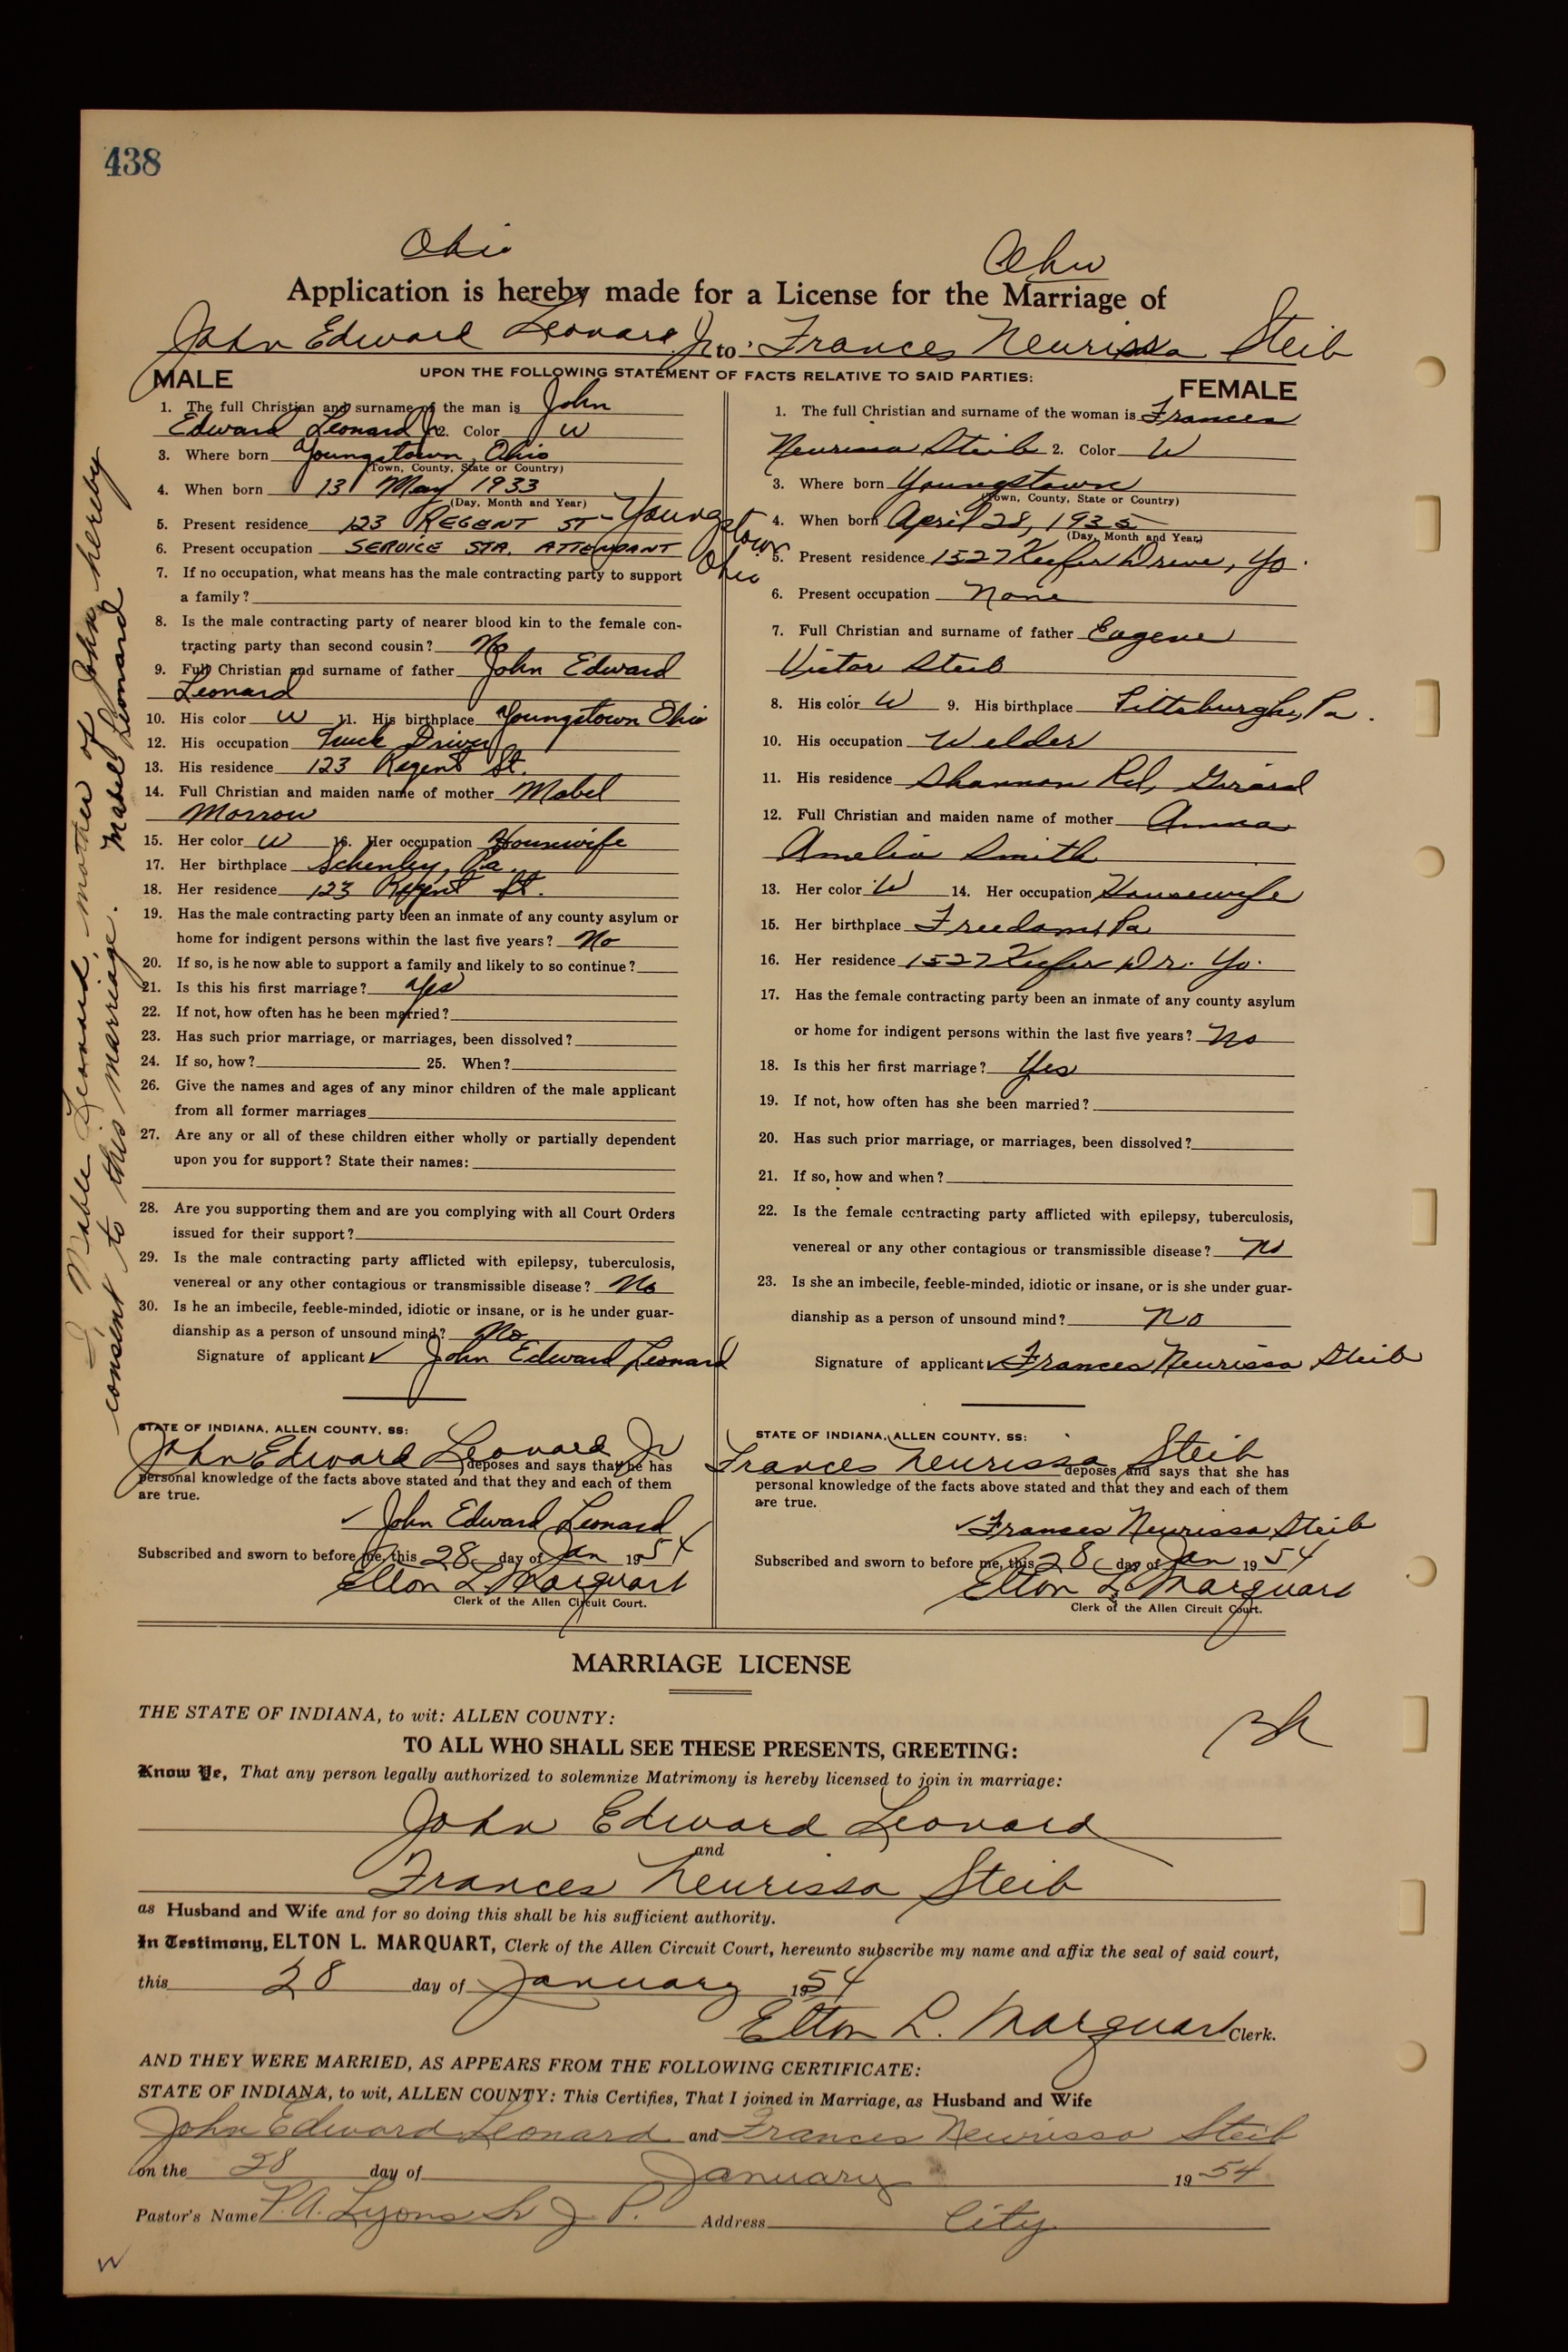 438
Ohio
Ohio
Application is hereby made for a License for the Marriage of
John Edward Leonard Jr to Frances Neurissa Steib
UPON THE FOLLOWING STATEMENT OF FACTS RELATIVE TO SAID PARTIES:
MALE
1. The full Christian and surname of the man is John
Edward Leonard Jr 2. Color W
3. Where born Youngstown, Ohio
(Town, County, State or Country)
4. When born 13 May 1933
(Day, Month and Year)
5. Present residence 123 REGENT ST - Youngstown
Ohio
6. Present occupation SERVICE STA. ATTENDANT
7. If no occupation, what means has the male contracting party to support
a family?
8. Is the male contracting party of nearer blood kin to the female con-
tracting party than second cousin? No
9. Full Christian and surname of father John Edward
Leonard
10. His color W 11. His birthplace Youngstown Ohio
12. His occupation Truck Driver
13. His residence 123 Regent St.
14. Full Christian and maiden name of mother Mabel
Morrow
15. Her color W 16. Her occupation Housewife
17. Her birthplace Schenley, Pa.
18. Her residence 123 Regent St.
19. Has the male contracting party been an inmate of any county asylum or
home for indigent persons within the last five years? No
20. If so, is he now able to support a family and likely to so continue?
21. Is this his first marriage? Yes
22. If not, how often has he been married?
23. Has such prior marriage, or marriages, been dissolved?
24. If so, how? 25. When?
26. Give the names and ages of any minor children of the male applicant
from all former marriages
27. Are any or all of these children either wholly or partially dependent
upon you for support? State their names:
28. Are you supporting them and are you complying with all Court Orders
issued for their support?
29. Is the male contracting party afflicted with epilepsy, tuberculosis,
venereal or any other contagious or transmissible disease? No
30. Is he an imbecile, feeble-minded, idiotic or insane, or is he under guar-
dianship as a person of unsound mind? No
Signature of applicant John Edward Leonard
STATE OF INDIANA, ALLEN COUNTY, SS:
John Edward Leonard Jr deposes and says that he has
personal knowledge of the facts above stated and that they and each of them
are true.
John Edward Leonard
Subscribed and sworn to before me, this 28 day of Jan 1954
Elton L Marquart
Clerk of the Allen Circuit Court.
I Mable Leonard, mother of John hereby
consent to this marriage. Mabel Leonard
FEMALE
1. The full Christian and surname of the woman is Frances
Neurissa Steib 2. Color W
3. Where born Youngstown
(Town, County, State or Country)
4. When born April 28, 1935
(Day, Month and Year)
5. Present residence 1527 Keefer Drive, Yo.
6. Present occupation None
7. Full Christian and surname of father Eugene
Victor Steib
8. His color W 9. His birthplace Pittsburgh, Pa.
10. His occupation Welder
11. His residence Shannon Rd, Girard
12. Full Christian and maiden name of mother Anna
Amelia Smith
13. Her color W 14. Her occupation Housewife
15. Her birthplace Freedom, Pa
16. Her residence 1527 Keefer Dr. Yo.
17. Has the female contracting party been an inmate of any county asylum
or home for indigent persons within the last five years? No
18. Is this her first marriage? Yes
19. If not, how often has she been married?
20. Has such prior marriage, or marriages, been dissolved?
21. If so, how and when?
22. Is the female contracting party afflicted with epilepsy, tuberculosis,
venereal or any other contagious or transmissible disease? No
23. Is she an imbecile, feeble-minded, idiotic or insane, or is she under guar-
dianship as a person of unsound mind? No
Signature of applicant Frances Neurissa Steib
STATE OF INDIANA, ALLEN COUNTY, SS:
Frances Neurissa Steib deposes and says that she has
personal knowledge of the facts above stated and that they and each of them
are true.
Frances Neurissa Steib
Subscribed and sworn to before me, this 28 day of Jan 1954
Elton L Marquart
Clerk of the Allen Circuit Court.
MARRIAGE LICENSE
THE STATE OF INDIANA, to wit: ALLEN COUNTY:
TO ALL WHO SHALL SEE THESE PRESENTS, GREETING:
Know Ye, That any person legally authorized to solemnize Matrimony is hereby licensed to join in marriage:
John Edward Leonard
and
Frances Neurissa Steib
as Husband and Wife and for so doing this shall be his sufficient authority.
In Testimony, ELTON L. MARQUART, Clerk of the Allen Circuit Court, hereunto subscribe my name and affix the seal of said court,
this 28 day of January 1954
Elton L. Marquart Clerk.
AND THEY WERE MARRIED, AS APPEARS FROM THE FOLLOWING CERTIFICATE:
STATE OF INDIANA, to wit, ALLEN COUNTY: This Certifies, That I joined in Marriage, as Husband and Wife
John Edward Leonard and Frances Neurissa Steib
on the 28 day of January 1954
Pastor's Name P.A. Lyons J P. Address City